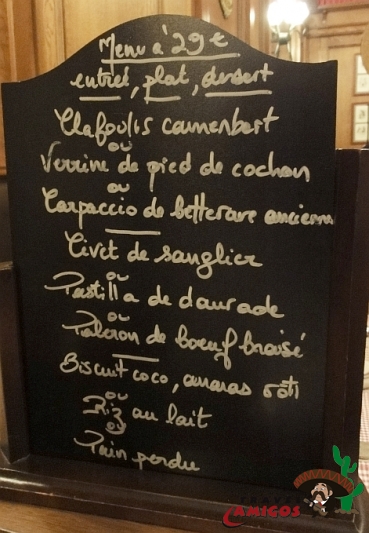 Menu à 29 €
entrée, plat, dessert
Clafoutis camembert
ou
Verrine de pied de cochon
ou
Carpaccio de betterave ancienne
Civet de sanglier
ou
Pastilla de daurade
ou
Paleron de boeuf braisé
Biscuit coco, ananas rôti
ou
Riz au lait
ou
Pain perdu
TRAVEL
CAMIGOS